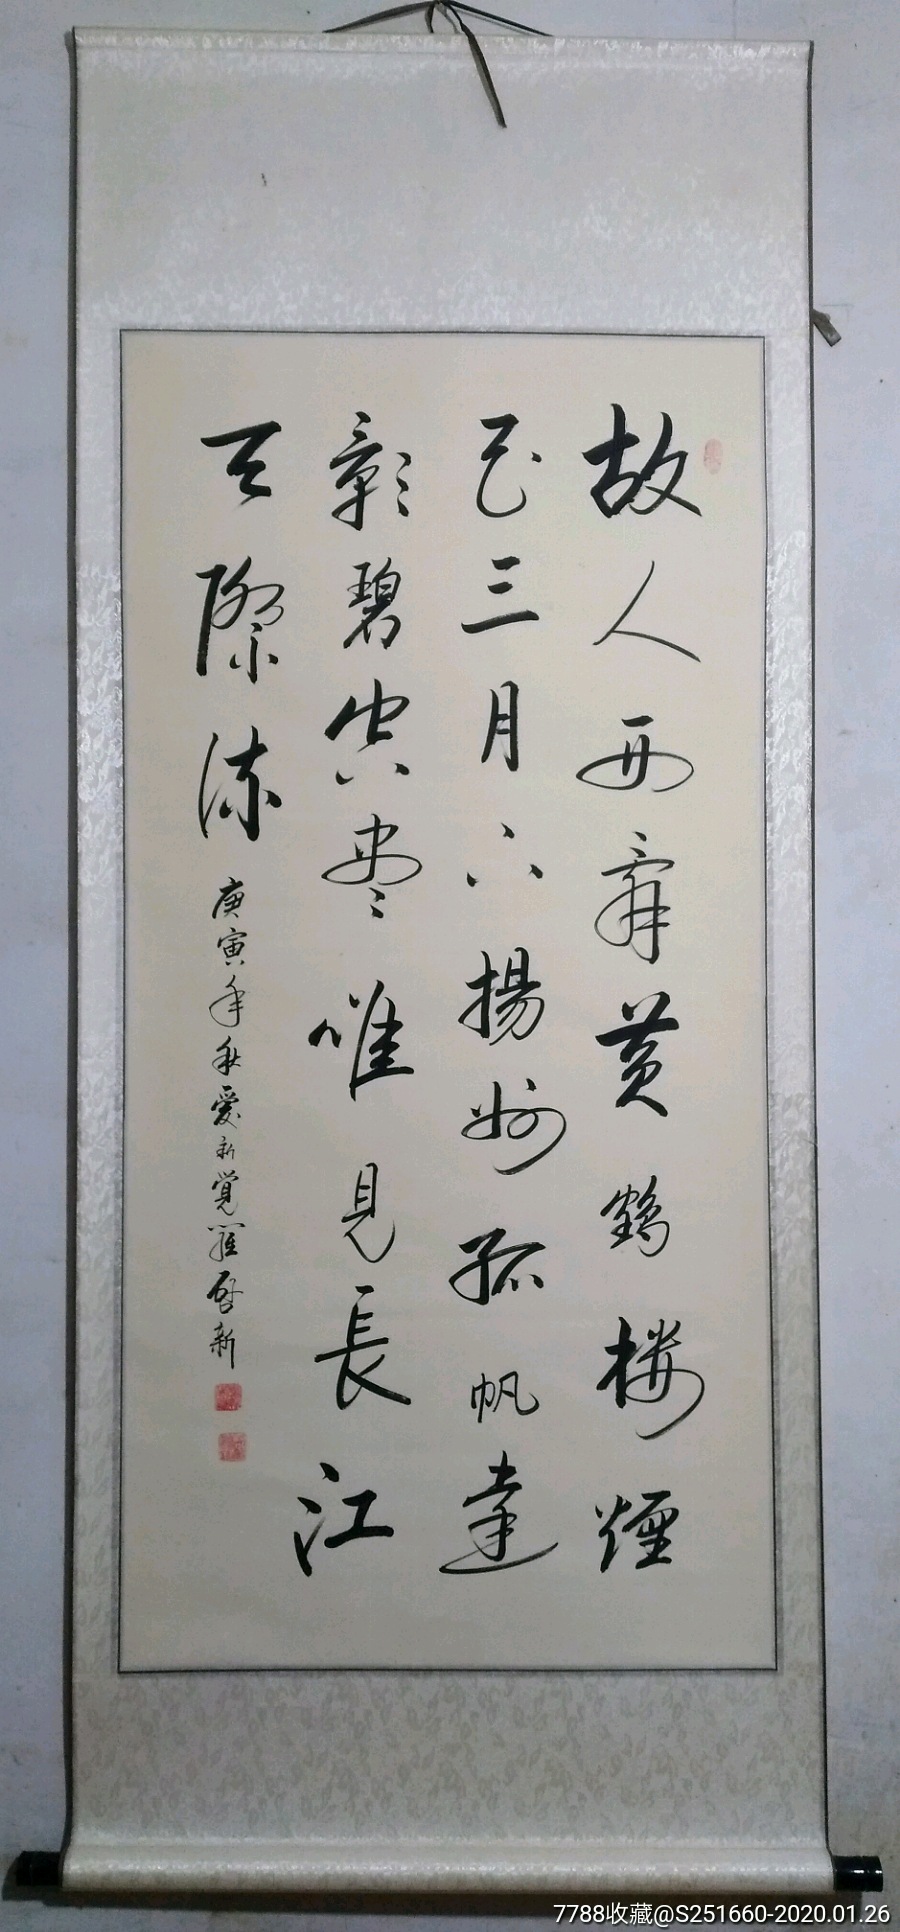 故人西辭黄鶴楼煙
花三月下揚州孤帆遠
影碧空尽唯見長江
天際流
庚寅年秋愛新覚羅啓新
7788收藏@S251660-2020.01.26